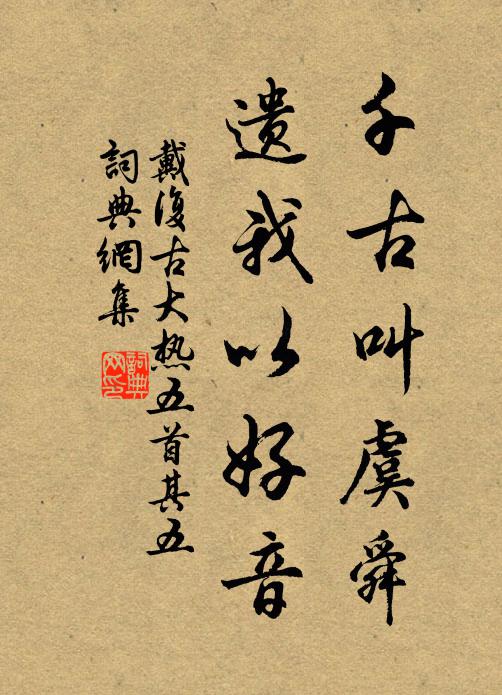 千古叫虞舜
遗我以好音
戴復古大热五首其五
詞典網集
詞典网印